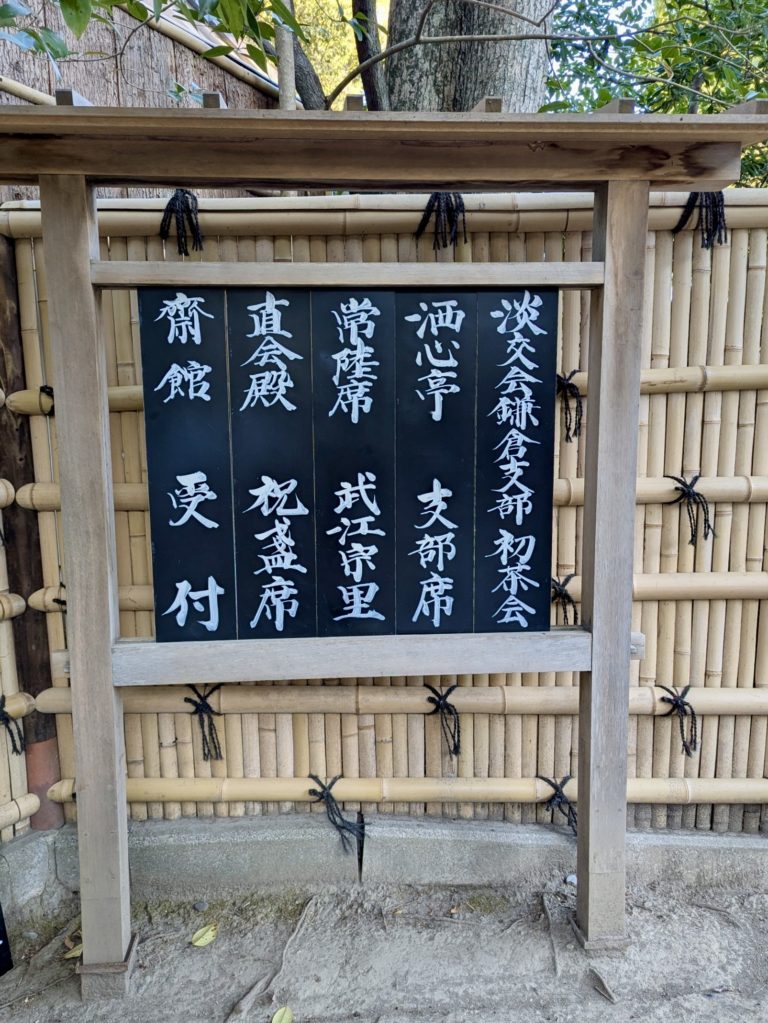 淡交会鎌倉支部 初茶会
洒心亭 支部席
常陸席 武江宗里
直会殿 祝盞席
齋館 受付